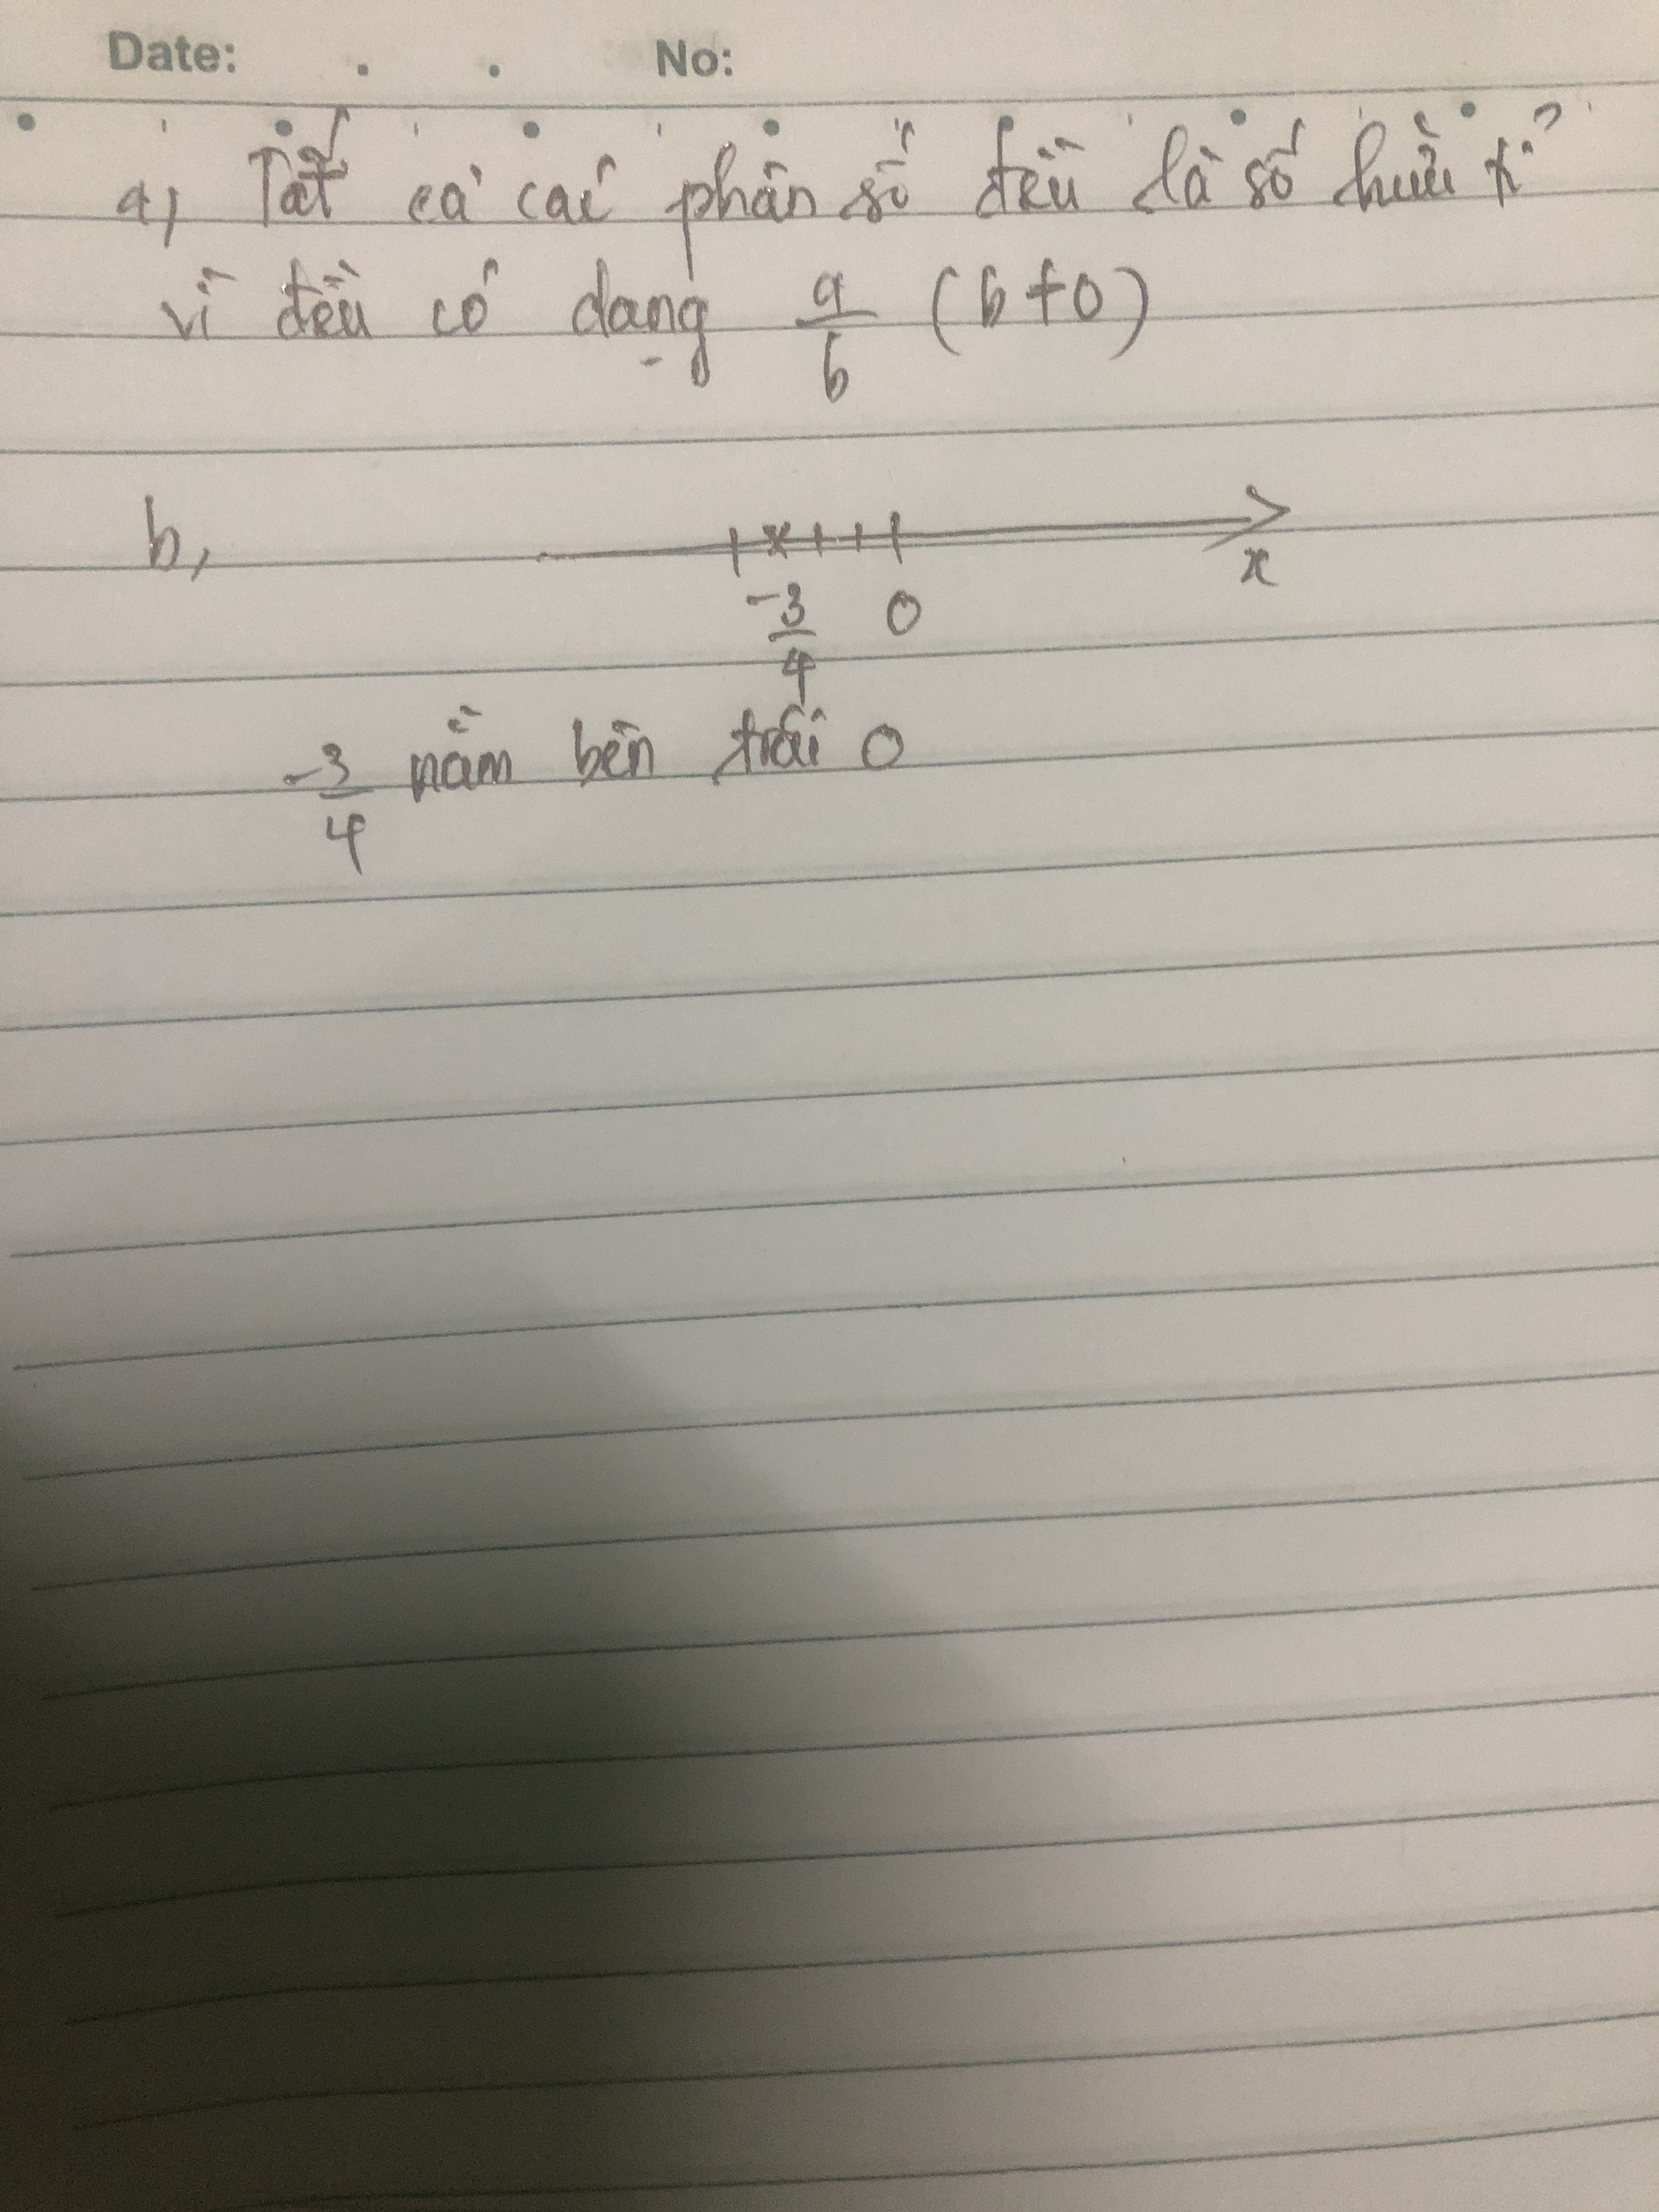 Date: . . No:
a, Tất cả các phân số đều là số hữu tỉ
vì đều có dạng a/b (b≠0)
b,
-3/4 0 x
-3/4 nằm bên trái 0